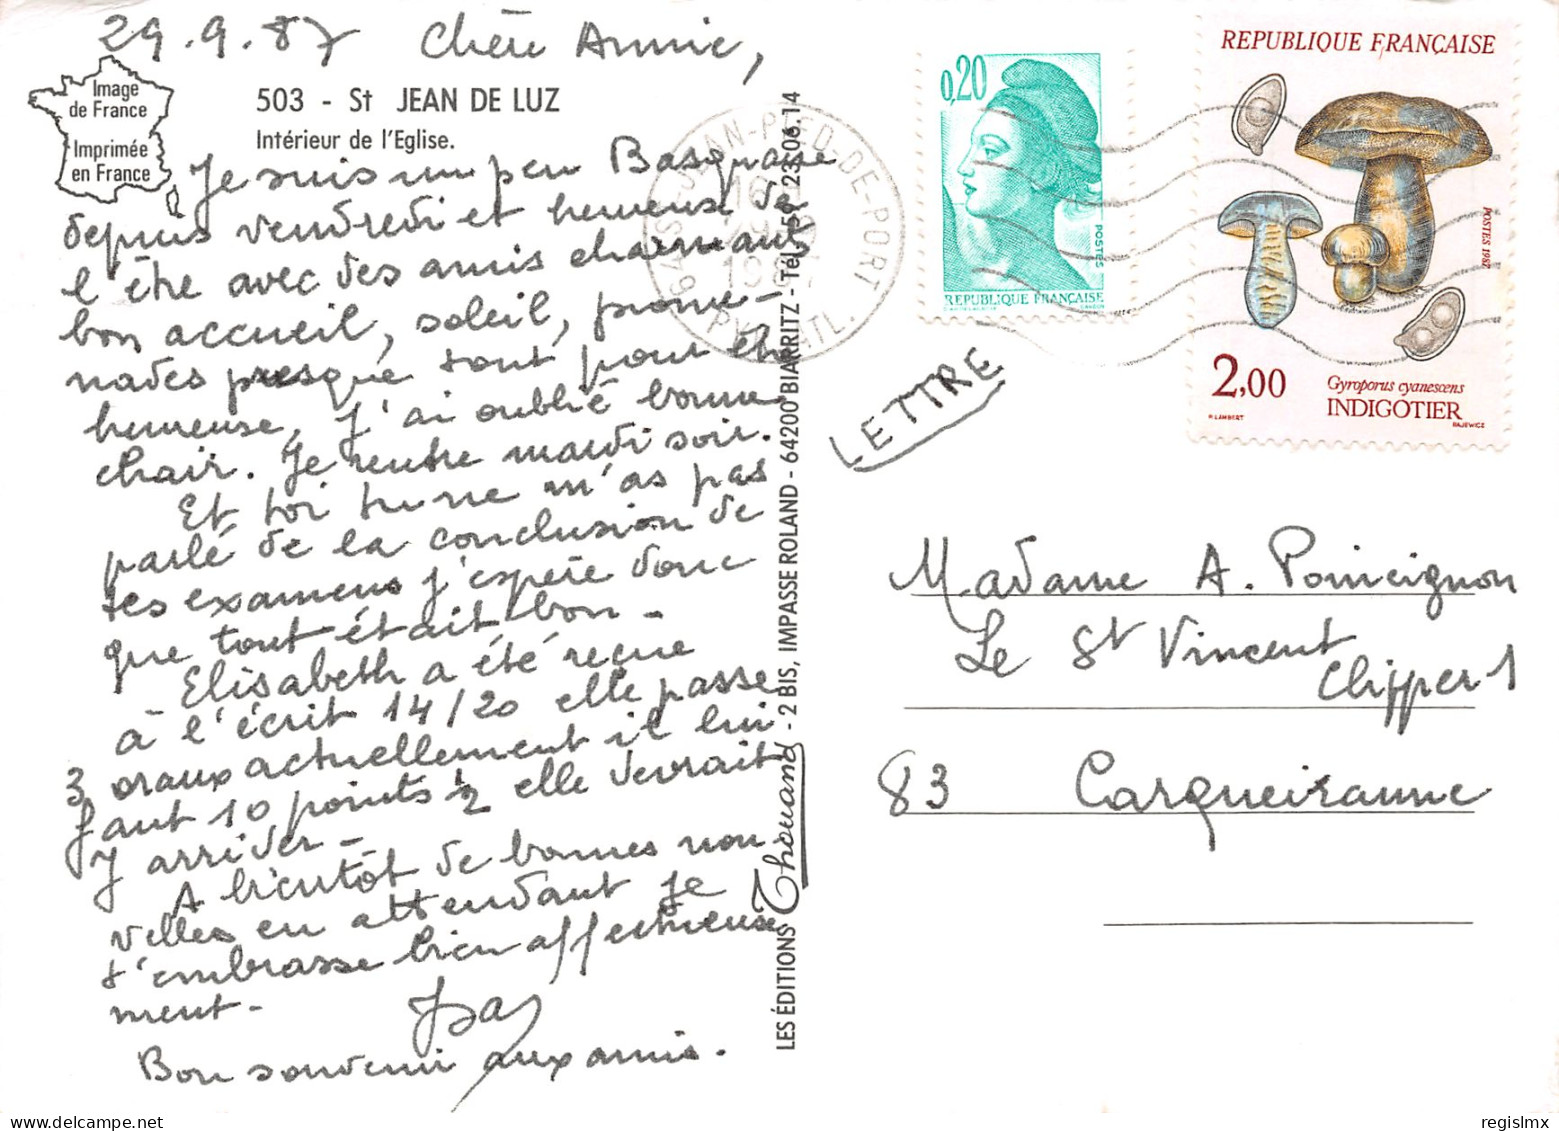 29.9.87 Chère Annie,
Image
de France
Imprimée
en France
503 - St JEAN DE LUZ
Intérieur de l'Eglise.
Je suis un peu Basquaise
depuis vendredi et heureuse de
l'être avec des amis charmants
bon accueil, soleil, prome-
nades presque sont pour être
heureuse, J'ai oublié bonne
chair. Je rentre mardi soir.
Et toi tu ne m'as pas
parlé de la conclusion de
tes examens j'espère donc
que tout était bon -
Elisabeth a été reçue
à l'écrit 14/20 elle passe
3 oraux actuellement il lui
faut 10 points ½ elle devrait
y arriver -
A bientôt de bonnes nou
velles en attendant je
t'embrasse bien affectueuse
ment -
Bon souvenir aux amis.
LES ÉDITIONS Thouand - 2 BIS, IMPASSE ROLAND - 64200 BIARRITZ - Tél. 59 23.06.14
64 ST-JEAN-PIED-DE-PORT
16
29-9
1987
PYR. ATL.
0,20
POSTES
REPUBLIQUE FRANÇAISE
REPUBLIQUE FRANÇAISE
POSTES 1987
2,00
Gyroporus cyanescens
INDIGOTIER
LAMBERT
RAJEWICZ
LETTRE
Madame A. Poincignon
Le St Vincent
Clipper 1
83 Carqueiranne
regislmx